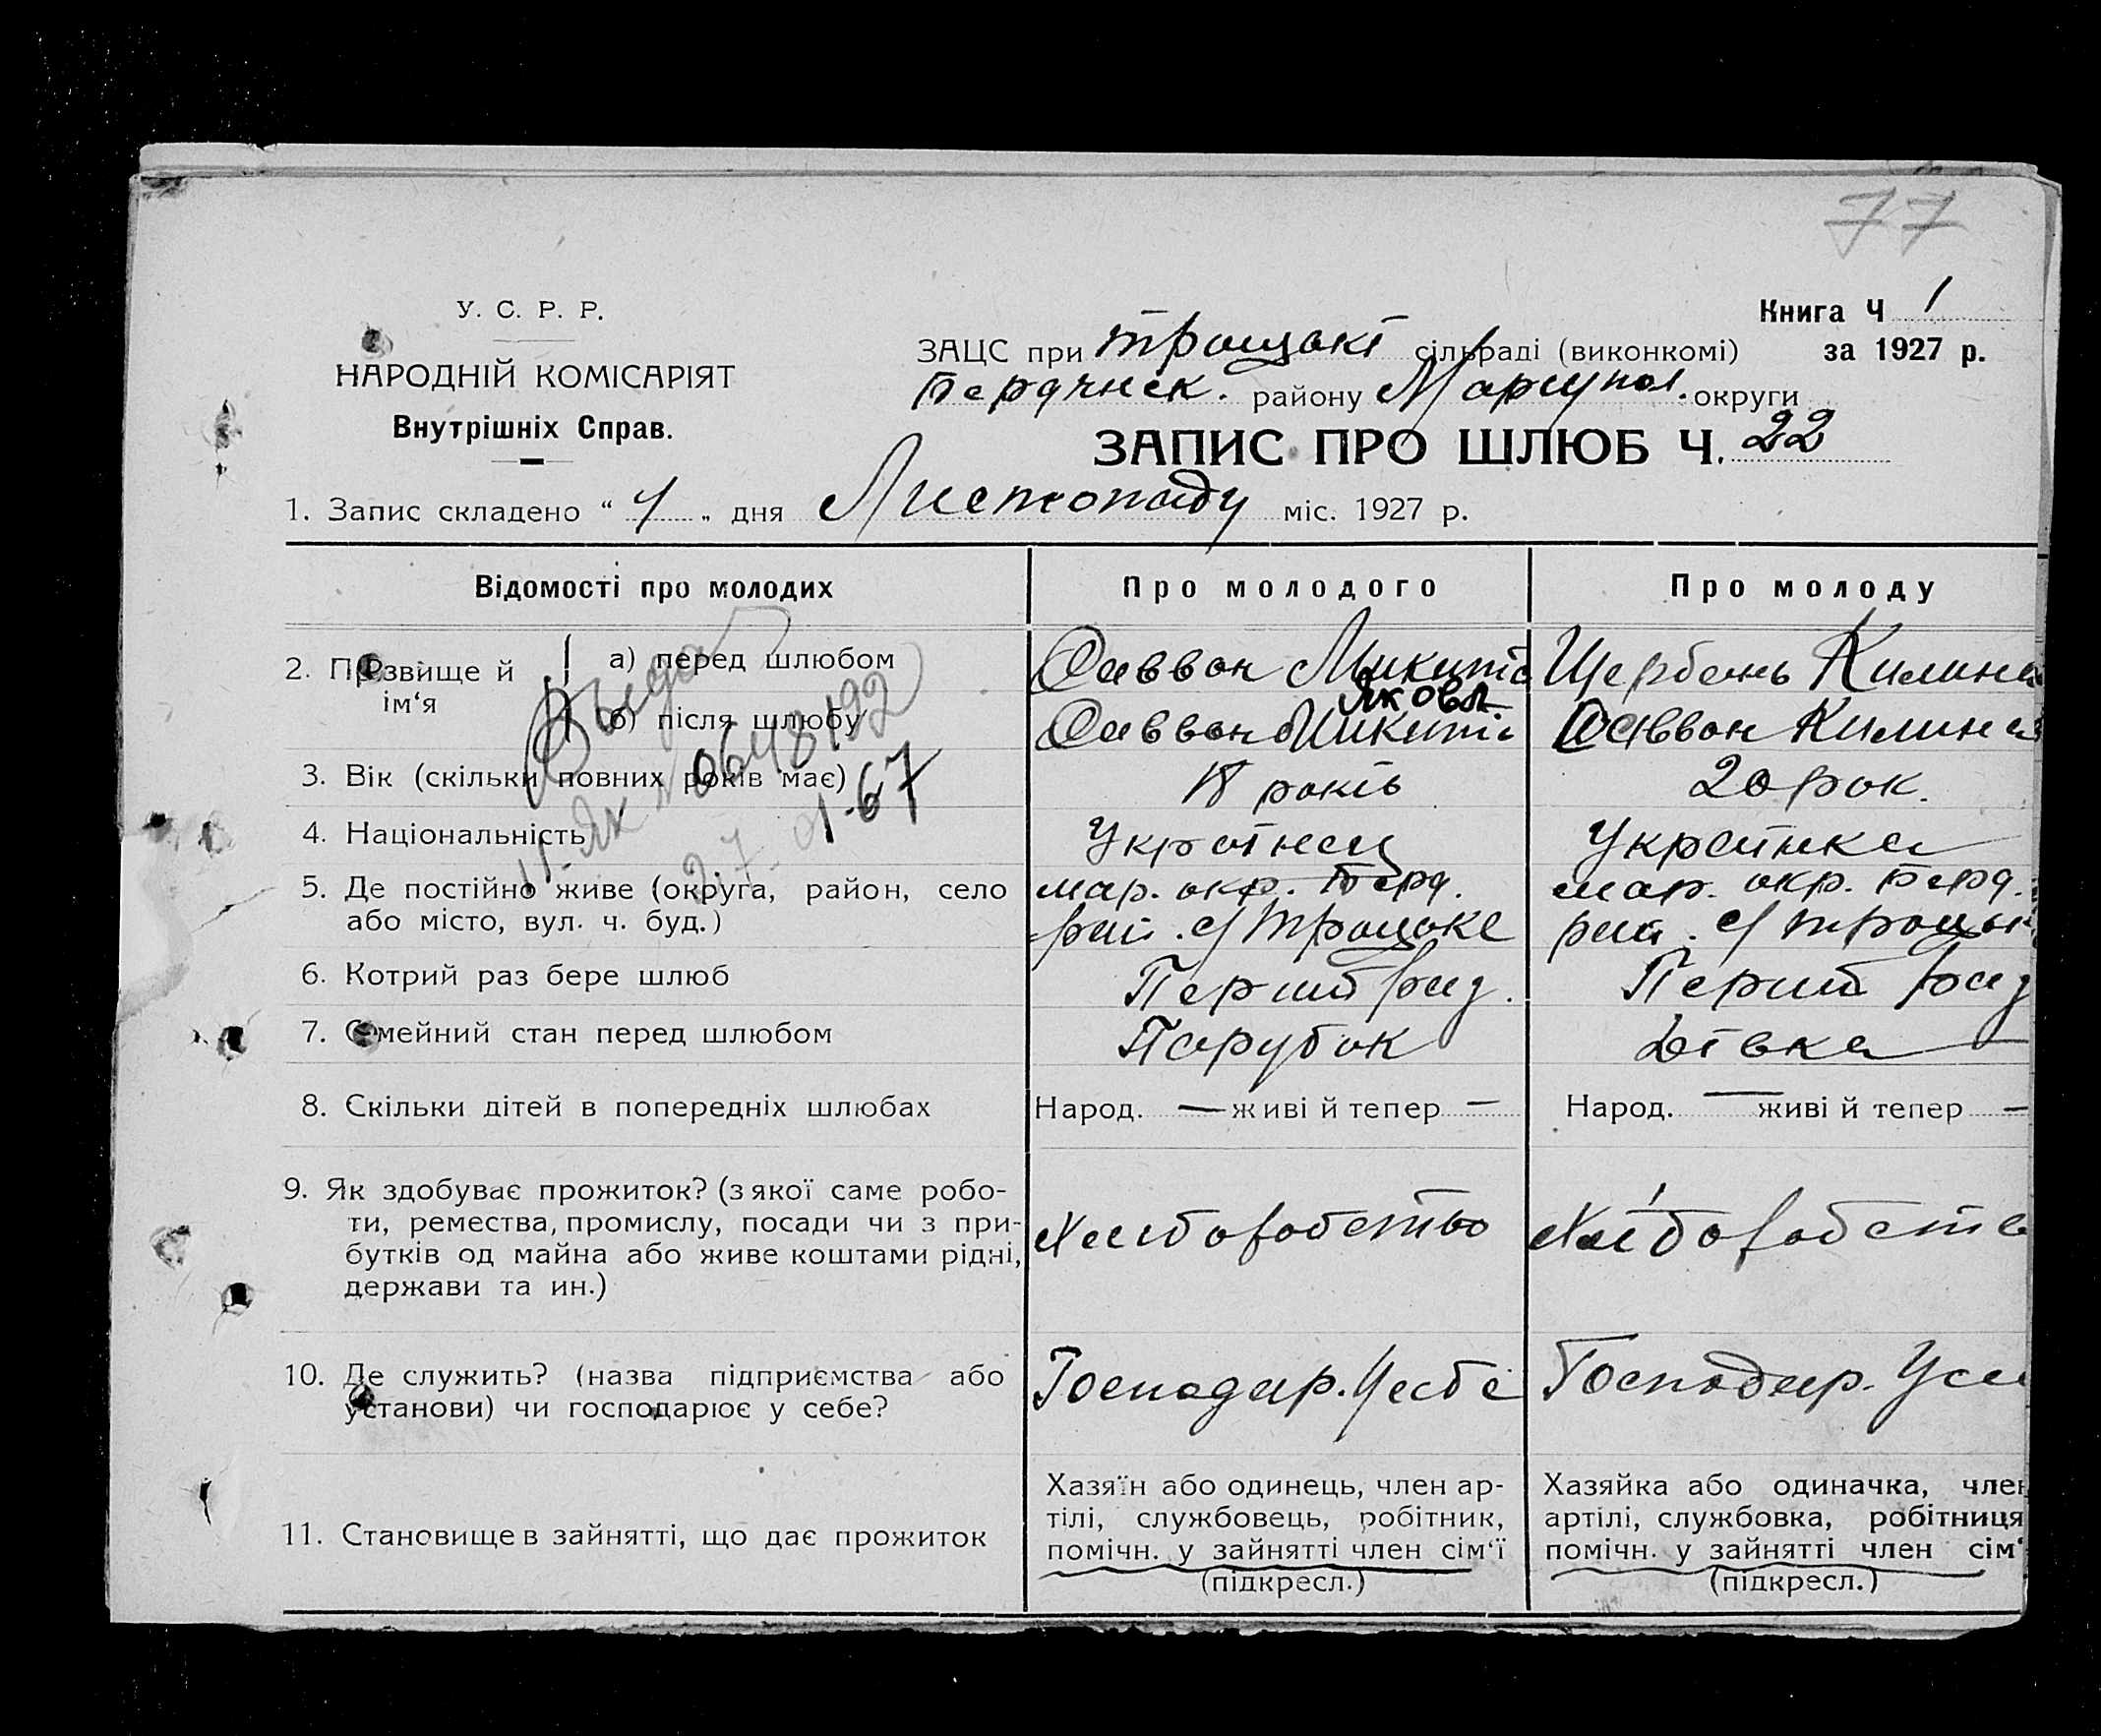 77
У. С. Р. Р.
НАРОДНІЙ КОМІСАРІЯТ
Внутрішніх Справ.
Книга Ч 1
за 1927 р.
ЗАЦС при Троцькі сільраді (виконкомі)
Бердянськ. району Маріупол. округи
ЗАПИС ПРО ШЛЮБ Ч. 22
1. Запис складено " 4 " дня Листопаду міс. 1927 р.
Відомості про молодих Про молодого Про молоду
2. Прізвище й ім‘я
а) перед шлюбом Саввон Микита Щербань Килина
Яковл
б) після шлюбу Саввон Микита Саввон Килина
3. Вік (скільки повних років має) 18 років 20 рок.
4. Національність Українец Українка
5. Де постійно живе (округа, район, село мар. окр. Берд. мар. окр. Берд.
або місто, вул. ч. буд.) рай. с/ Троцьке рай. с/ Троцьк
6. Котрий раз бере шлюб Перший раз. Перший раз
7. Семейний стан перед шлюбом Парубок Дівка
8. Скільки дітей в попередніх шлюбах Народ. — живі й тепер — Народ. — живі й тепер —
9. Як здобуває прожиток? (з якої саме робо-
ти, ремества, промислу, посади чи з при-
бутків од майна або живе коштами рідні,
держави та ин.)
Хліборобство Хліборобств
10. Де служить? (назва підприємства або
установи) чи господарює у себе?
Господар. у себе Господар. у се
11. Становище в зайнятті, що дає прожиток
Хазяїн або одинець, член ар-
тілі, службовець, робітник,
помічн. у зайнятті член сім‘ї
(підкресл.)
Хазяйка або одиначка, член
артілі, службовка, робітниця
помічн. у зайнятті член сім‘
(підкресл.)
0648192
67